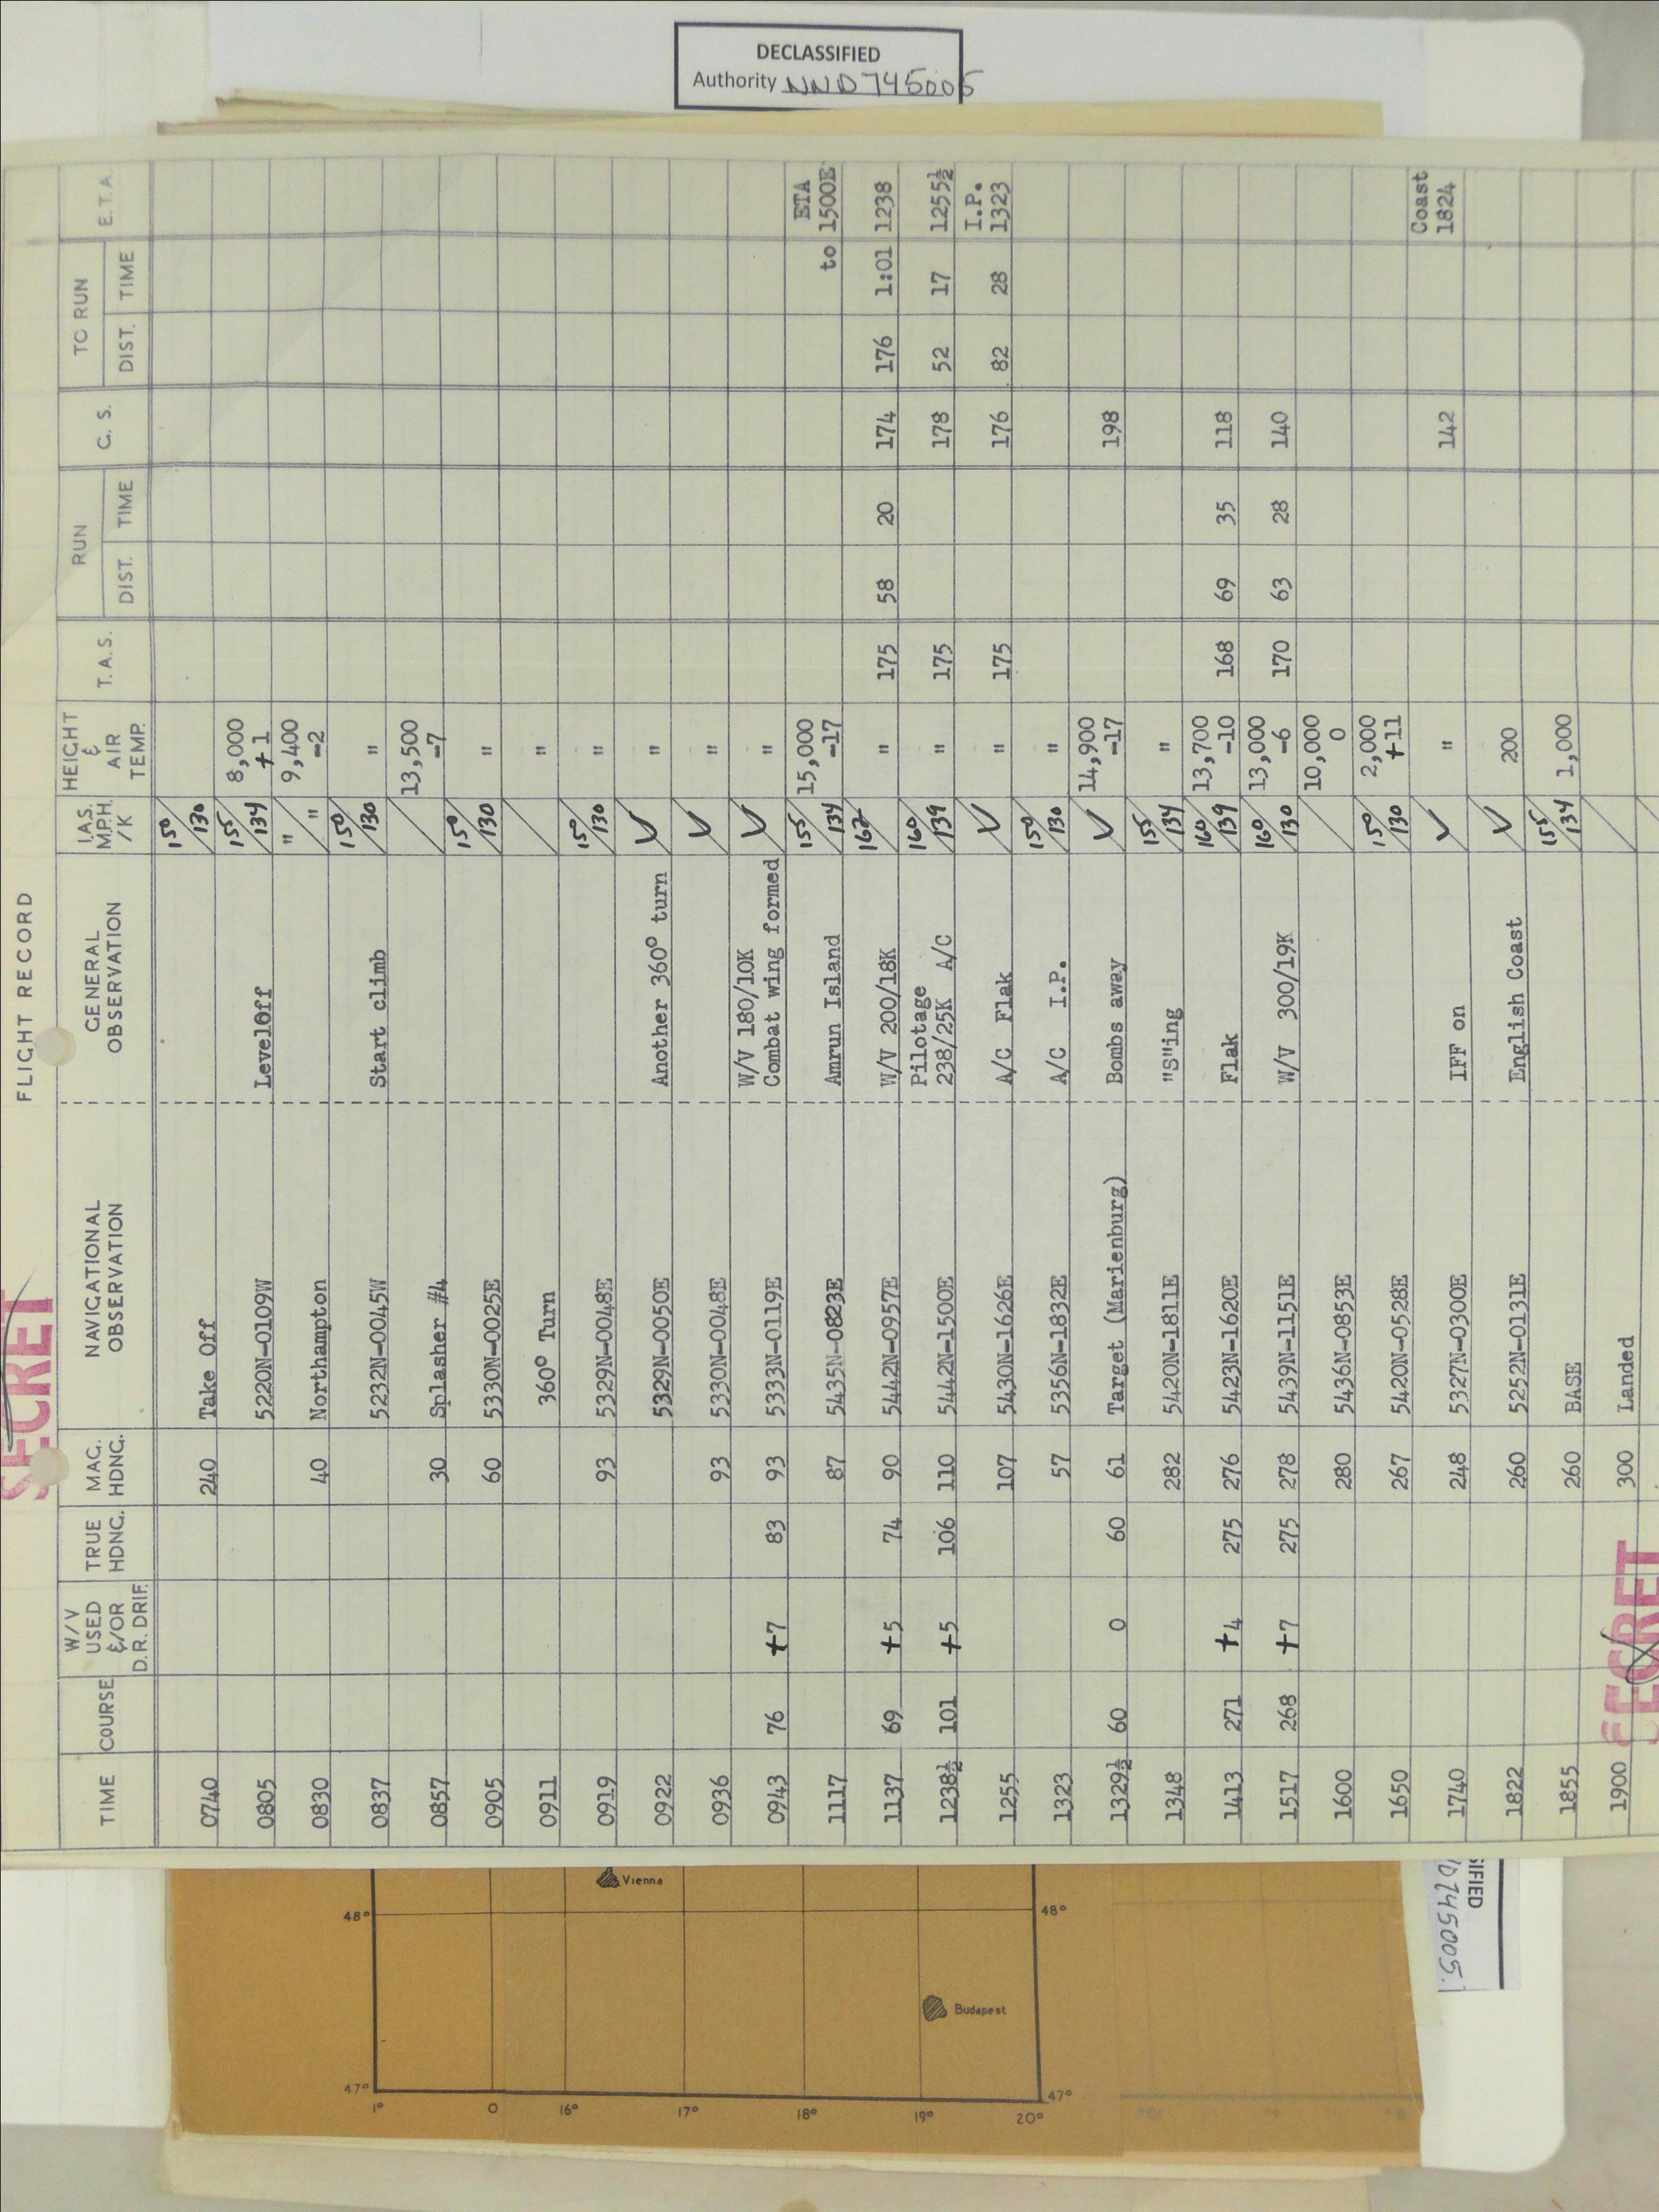 DECLASSIFIED
Authority NND745005
SECRET
FLIGHT RECORD
TIME COURSE W/V USED &/OR D.R. DRIF. TRUE HDNG. MAG. HDNG. NAVIGATIONAL OBSERVATION GENERAL OBSERVATION I.A.S. M.P.H. /K HEIGHT & AIR TEMP. T.A.S. RUN DIST. TIME G. S. TO RUN DIST. TIME E.T.A.
0740 240 Take Off 150/130
0805 5220N-0109W Leveloff 155/134 8,000 +1
0830 40 Northampton " " 9,400 -2
0837 5232N-0045W Start climb 150/130 "
0857 30 Splasher #4 13,500 -7
0905 60 5330N-0025E 150/130 "
0911 360° Turn "
0919 93 5329N-0048E 150/130 "
0922 5329N-0050E Another 360° turn ✓ "
0936 93 5330N-0048E ✓ "
0943 76 +7 83 93 5333N-0119E W/V 180/10K Combat wing formed ✓ "
1117 87 5435N-0823E Amrun Island 155/134 15,000 -17 ETA to 1500E
1137 69 +5 74 90 5442N-0957E W/V 200/18K 162 " 175 58 20 174 176 1:01 1238
1238½ 101 +5 106 110 5442N-1500E Pilotage 238/25K A/C 160/139 " 175 178 52 17 1255½
1255 107 5430N-1626E A/C Flak ✓ " 175 176 82 28 I.P. 1323
1323 57 5356N-1832E A/C I.P. 150/130 "
1329½ 60 0 60 61 Target (Marienburg) Bombs away ✓ 14,900 -17 198
1348 282 5420N-1811E "S"ing 155/134 "
1413 271 +4 275 276 5423N-1620E Flak 160/139 13,700 -10 168 69 35 118
1517 268 +7 275 278 5439N-1151E W/V 300/19K 160/130 13,000 -6 170 63 28 140
1600 280 5436N-0853E 10,000 0
1650 267 5420N-0528E 150/130 2,000 +11
1740 248 5327N-0300E IFF on ✓ " 142 Coast 1824
1822 260 5252N-0131E English Coast ✓ 200
1855 260 BASE 155/134 1,000
1900 300 Landed
SECRET
Vienna
48° 48°
Budapest
47° 47°
1° 0 16° 17° 18° 19° 20°
SIFIED
D745005